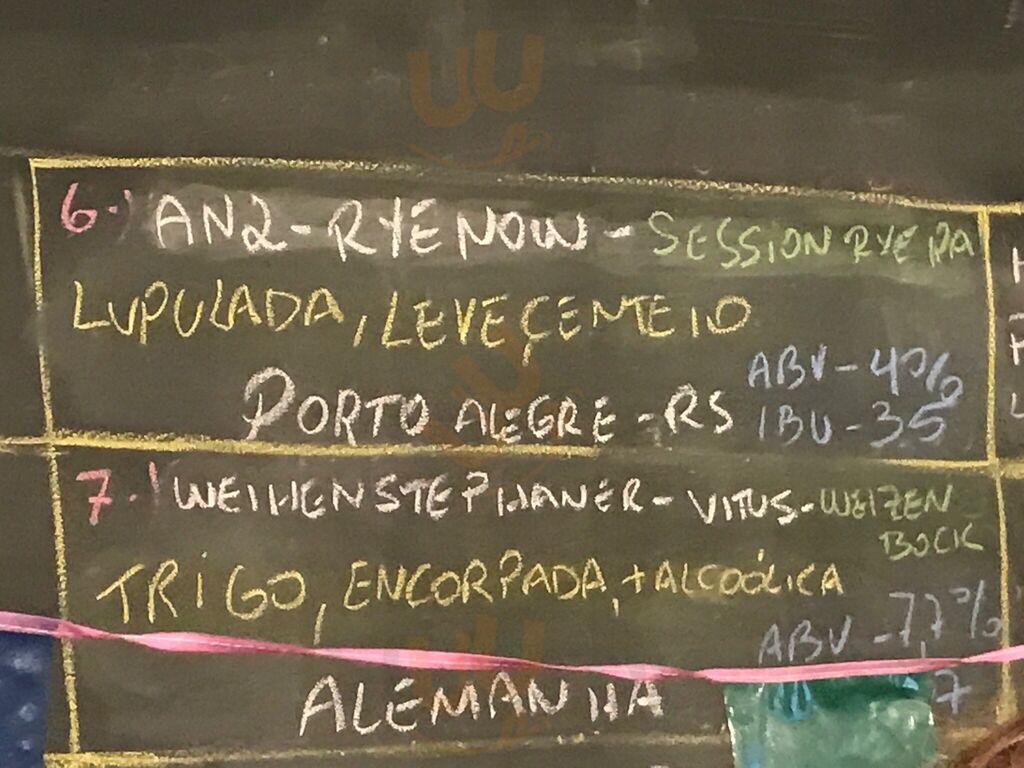 6.) AN2 - RYE NOW - SESSION RYE PA
LUPULADA, LEVE, CENTEIO
ABV - 4%
PORTO ALEGRE - RS IBU - 35
7.) WEIHENSTEPHANER - VITUS - WEIZEN
BOCK
TRIGO, ENCORPADA, + ALCOÓLICA
ABV - 7,7%
ALEMANHA